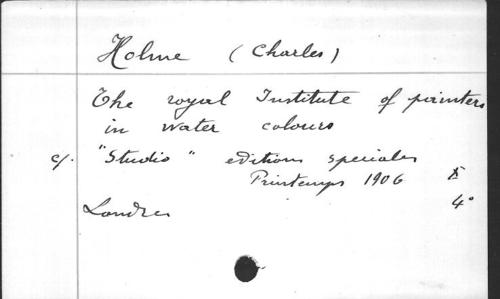 Holme (Charles)
The royal Institute of painters
in water colours
c/. "Studio" editions speciales
Printemps 1906
4°
Londres